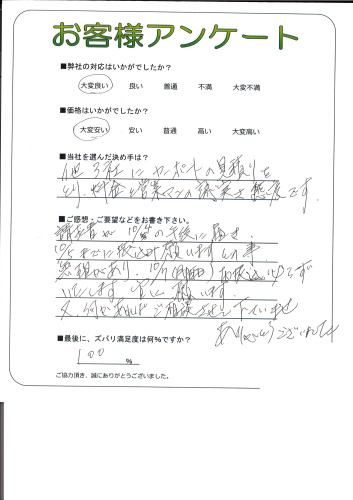 お客様アンケート
■弊社の対応はいかがでしたか?
大変良い 良い 普通 不満 大変不満
■価格はいかがでしたか?
大変安い 安い 普通 高い 大変高い
■当社を選んだ決め手は?
他3社にカーポートの見積りを
とり、料金と営業マンの誠実な態度です。
■ご感想・ご要望などをお書き下さい。
請求書が10/4の午後に届き、
10/5までに振込お願いします
いたします 願います。
又、何かあればご相談させて下さいませ
ありがとうございました
■最後に、ズバリ満足度は何%ですか?
100 %
ご協力頂き、誠にありがとうございました。